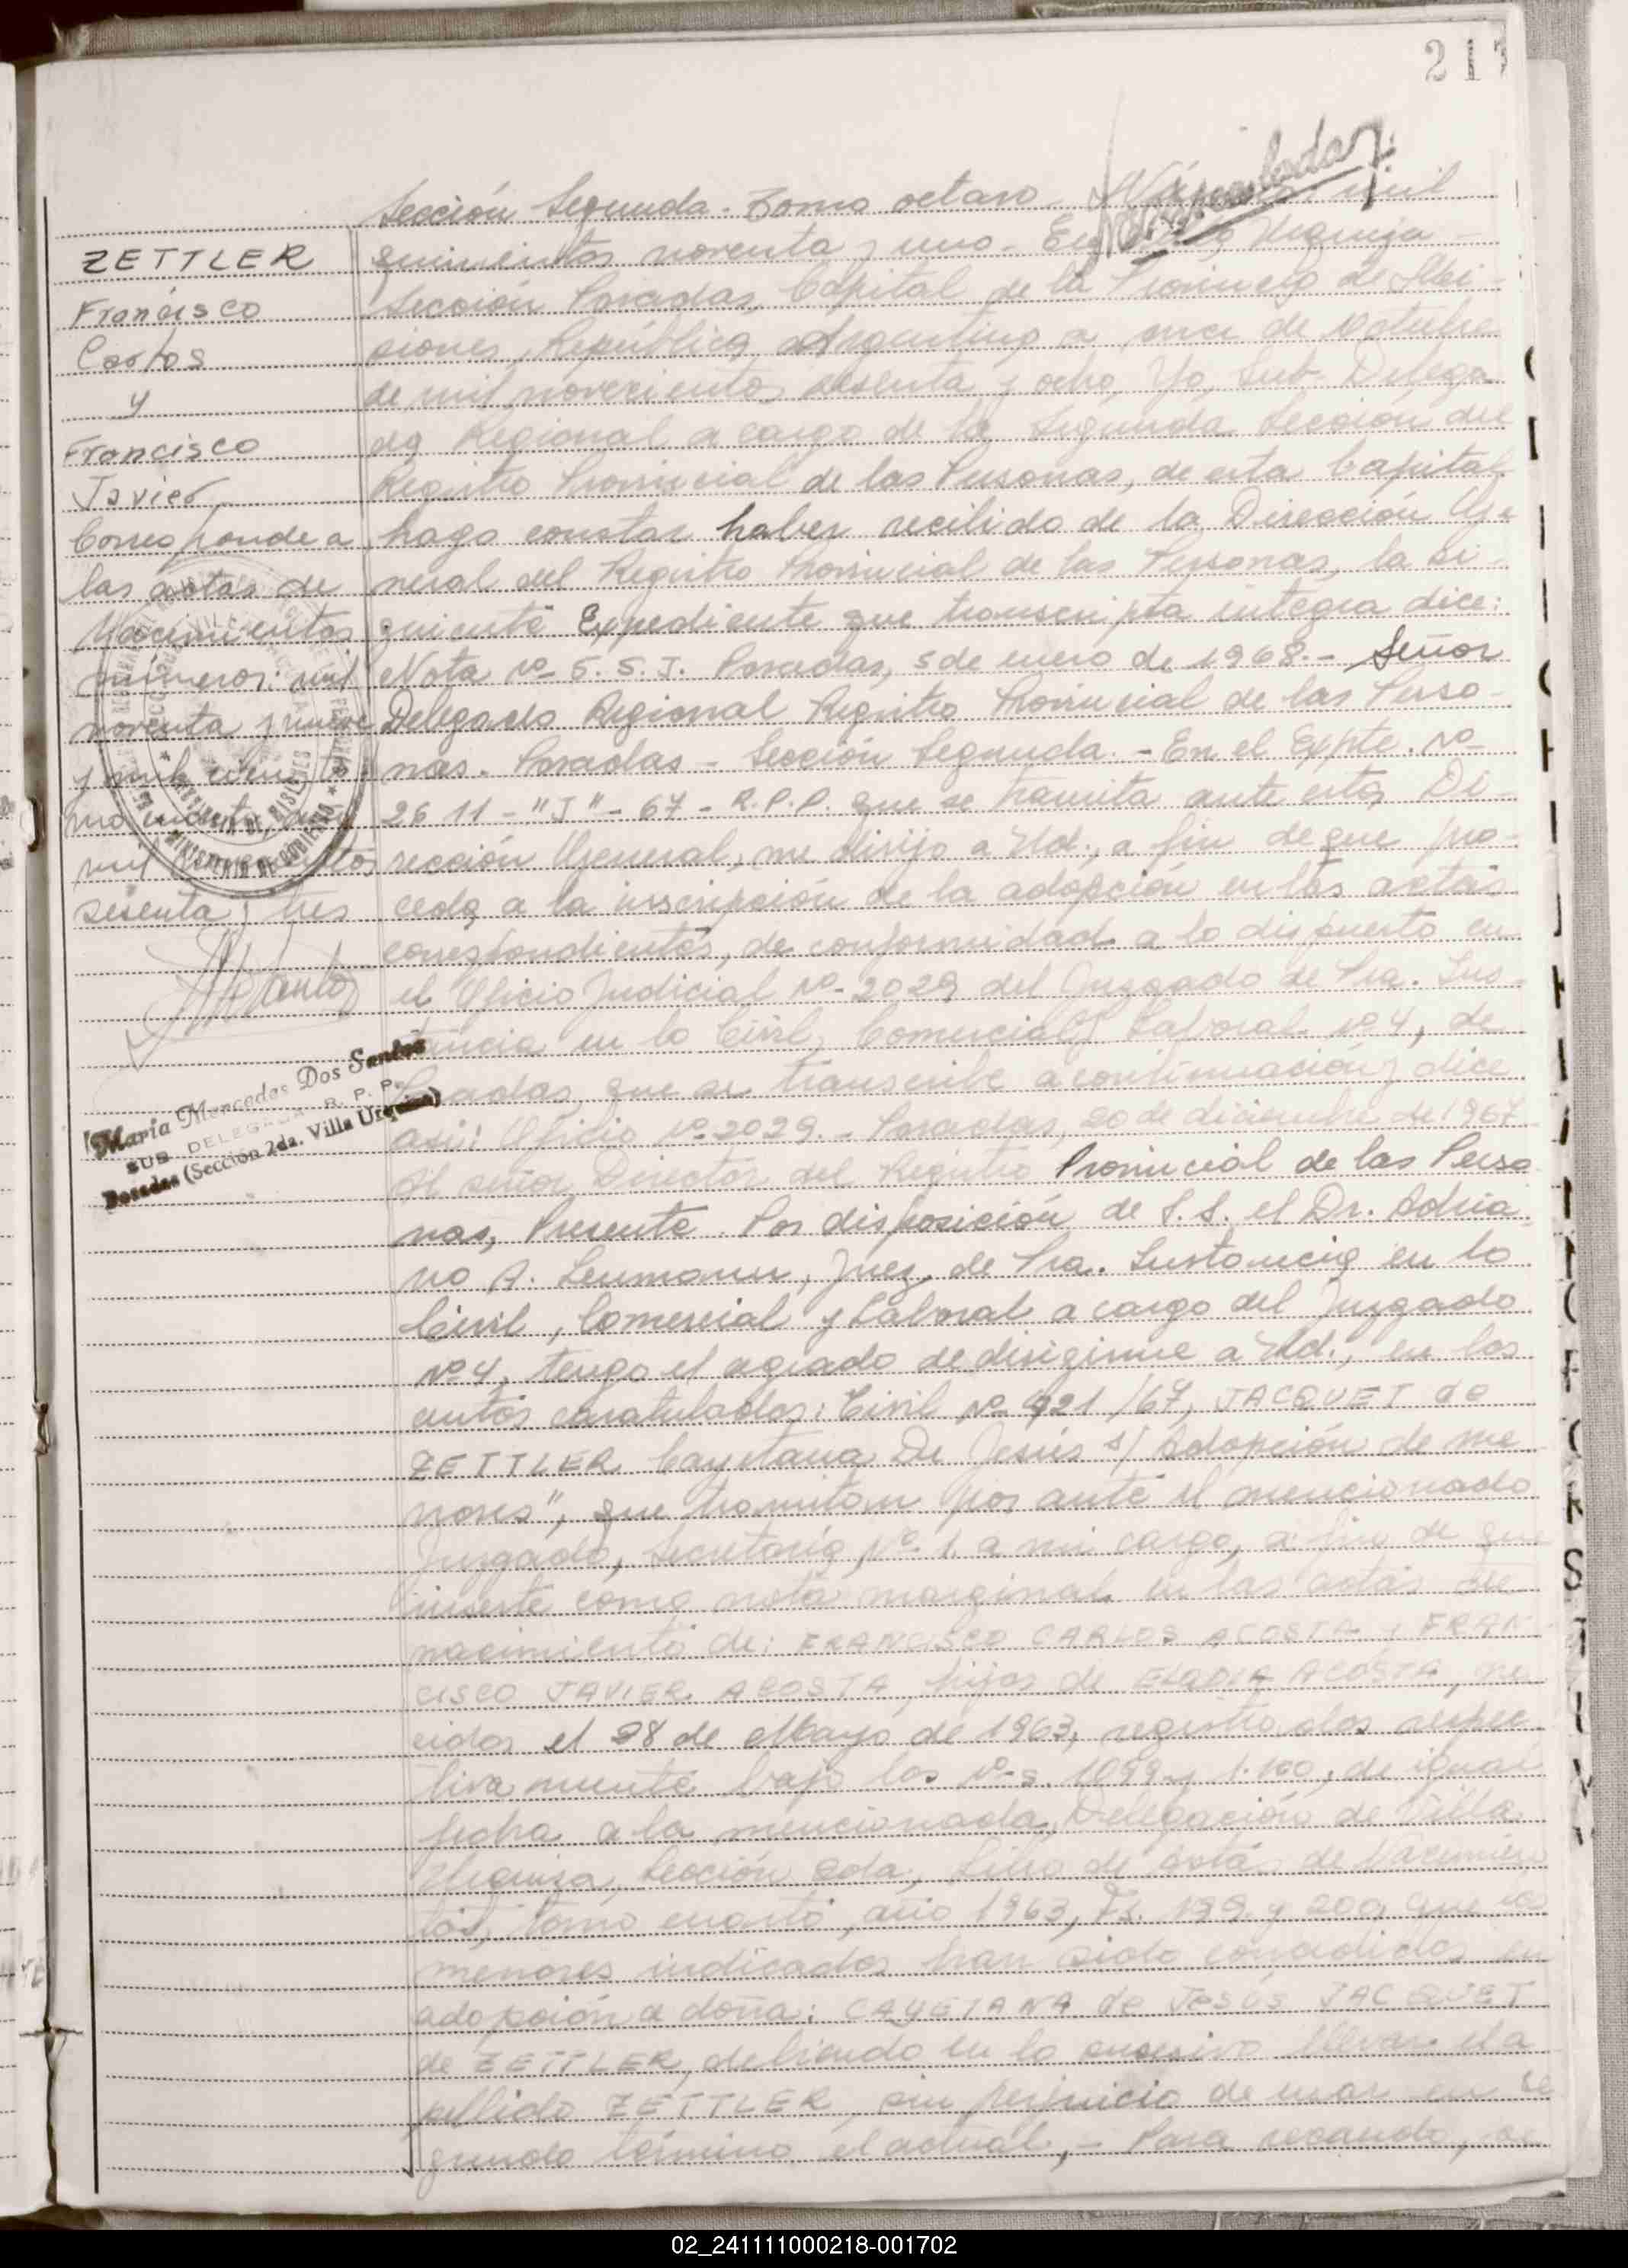 217
Sección Segunda. Tomo octavo. Número: mil
quinientos noventa y uno. En Villa Urquiza
Sección Posadas, Capital de la Provincia de Mi-
siones, República Argentina a once de Octubre
de mil novecientos sesenta y ocho, Yo, Sub-Delega
da Regional a cargo de la Segunda Sección del
Registro Provincial de las Personas, de esta Capital
hago constar haber recibido de la Dirección Ge-
neral del Registro Provincial de las Personas, la si-
guiente Expediente que transcripta integra dice:
Nota nº 5. S. J. Posadas, 5 de enero de 1968.- Señor
Delegado Regional Registro Provincial de las Perso-
nas. Posadas - Sección Segunda. - En el Expte. nº
2611 - "J" - 67 - R.P.P. que se tramita ante esta Di-
rección General, me dirijo a Ud., a fin de que pro-
ceda a la inscripción de la adopción en las actas
correspondientes, de conformidad a lo dispuesto en
el Oficio Judicial nº 2029 del Juzgado de Pra. Ins-
tancia en lo Civil, Comercial y Laboral nº 4, de
Posadas, que se transcribe a continuación y dice
así: Oficio nº 2029. - Posadas, 20 de diciembre de 1967
Al señor Director del Registro Provincial de las Perso
nas, Presente. Por disposición de S.S. el Dr. Adria
no A. Leumann, Juez de Pra. Instancia en lo
Civil, Comercial y Laboral a cargo del Juzgado
nº 4, tengo el agrado de dirigirme a Ud., en los
autos caratulados: Civil nº 421/67, JACQUET de
ZETTLER Cayetana De Jesús s/ Adopción de me
nores", que tramitan por ante el mencionado
Juzgado, Secretaría nº 1 a mi cargo, a fin de que
inserte como nota marginal en las actas de
nacimiento de: FRANCISCO CARLOS ACOSTA y FRAN
CISCO JAVIER ACOSTA, hijos de ELADIA ACOSTA, na
cidos el 28 de Mayo de 1963, registrados respec
tivamente bajo los nºs. 1099 y 1.100, de igual
fecha a la mencionada Delegación de Villa
Urquiza, Sección 2da., Libro de actas de Nacimien
tos, tomo cuarto, año 1963, Fs. 199 y 200, que los
menores indicados han sido concedidos en
adopción a doña: CAYETANA de JESÚS JACQUET
de ZETTLER, debiendo en lo sucesivo llevar el a
pellido ZETTLER, sin perjuicio de usar en se
gundo término el actual, - Para recaudo, se
ZETTLER
Francisco
Carlos
y
Francisco
Javier
Corresponde a
las actas de
Nacimientos
números: mil
noventa y nueve
y mil cien, to
mo cuarto, año
mil novecientos
sesenta y tres
MINISTERIO DE GOBIERNO
María Mercedes Dos Santos
SUB DELEGADA R. P. P.
Posadas (Sección 2da. Villa Urquiza)
02_241111000218-001702